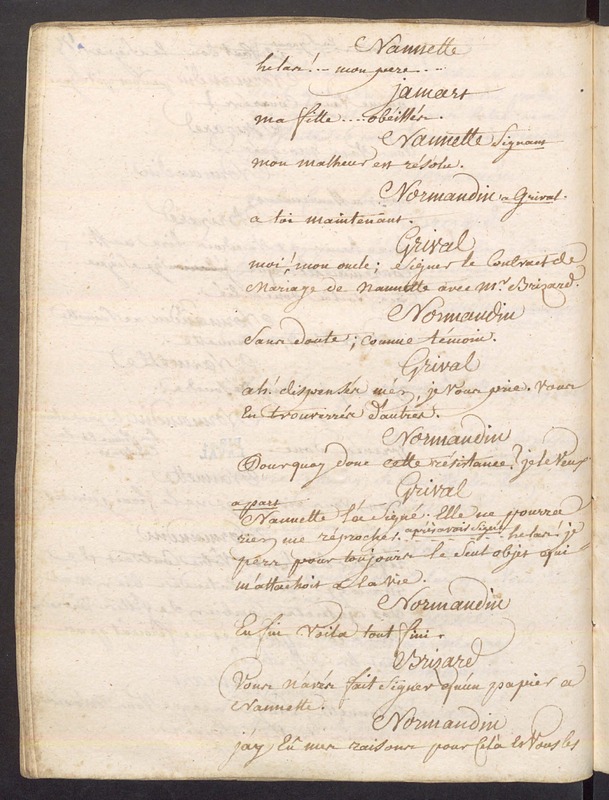 Nannette
helas! -- mon pere ---
jamars
ma fille .... obeissés.
Nannette Signant
mon malheur est résolu.
Normandin a Grival.
a toi maintenant.
Grival
moi! mon oncle; signer le Contract de
Mariage de Nannette avec Mr. Brizard.
Normandin
Sans doute; comme témoin.
Grival
ah! dispensés m'en, je Vous prie. Vous
En trouverrés d'autres.
Normandin
Pourquoy donc cette résistance? je le Veux
Grival
a part
Nannette l'a Signé. Elle ne pourra
rien me reprocher. après avoir Signé helas! je
pers pour toujours le seul objet qui
m'attachoit a la vie.
Normandin
Enfin Voila tout fini.
Brizard
Vous n'avés fait Signer qu'un papier a
Nannette.
Normandin
j'ay Eu mes raisons pour Cela Et Vous les